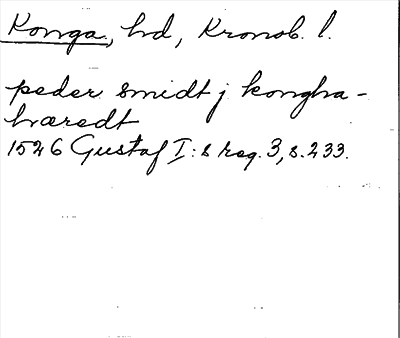 Konga, hd, Kronob. l.
peder smidt j kongha-
hæredt
1526 Gustaf I:s reg. 3, s. 233.